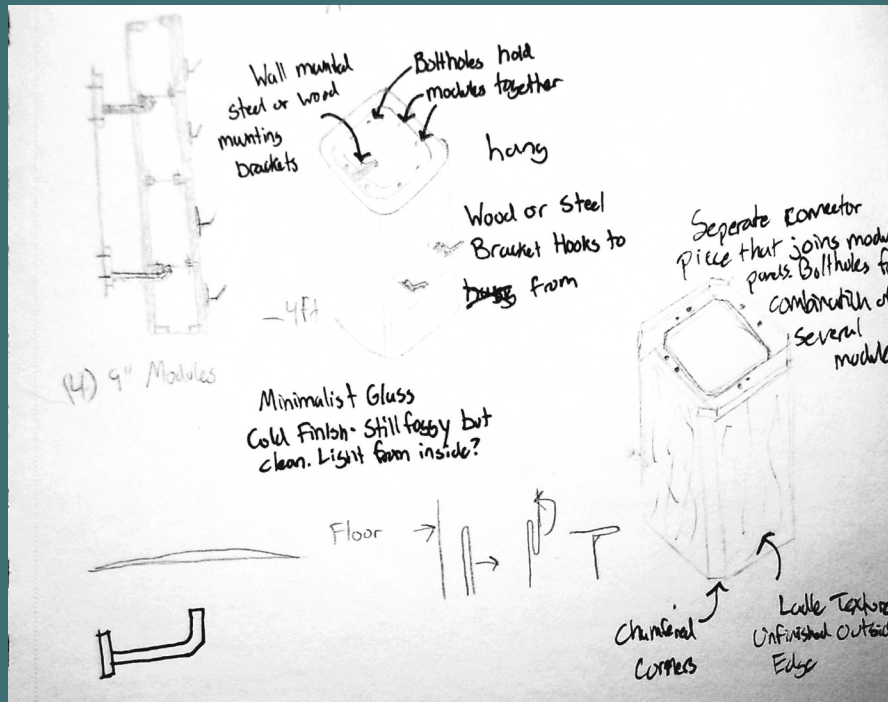 Wall munted
steel or wood
munting
brackets
Boltholes hold
modules together
hang
Wood or Steel
Bracket Hooks to
from
4ft
(4) 9" Modules
Seperate connector
piece that joins modu
Boltholes fo
combination of
several
module
Minimalist Glass
Cold Finish- Still foggy but
clean. Light from inside?
Floor
Chamfered
Corners
Ladle Texture
Unfinished Outsid
Edge